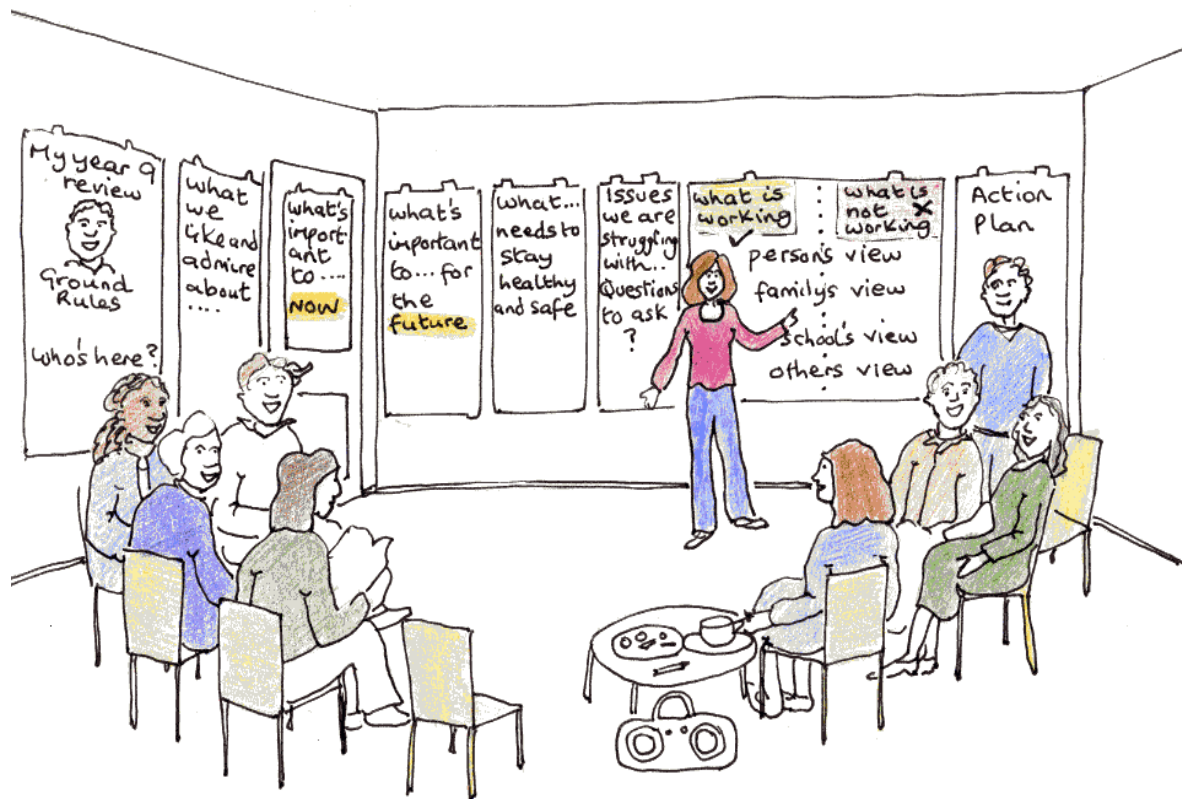 My year 9
review
Ground
Rules
who's here?
what
we
like and
admire
about
....
what's
import
ant
to ....
now
what's
important
to... for
the
future
what...
needs to
stay
healthy
and safe
Issues
we are
struggling
with..
Questions
to ask
?
what is
working
what is
not
working
person's view
family's view
school's view
others view
Action
Plan